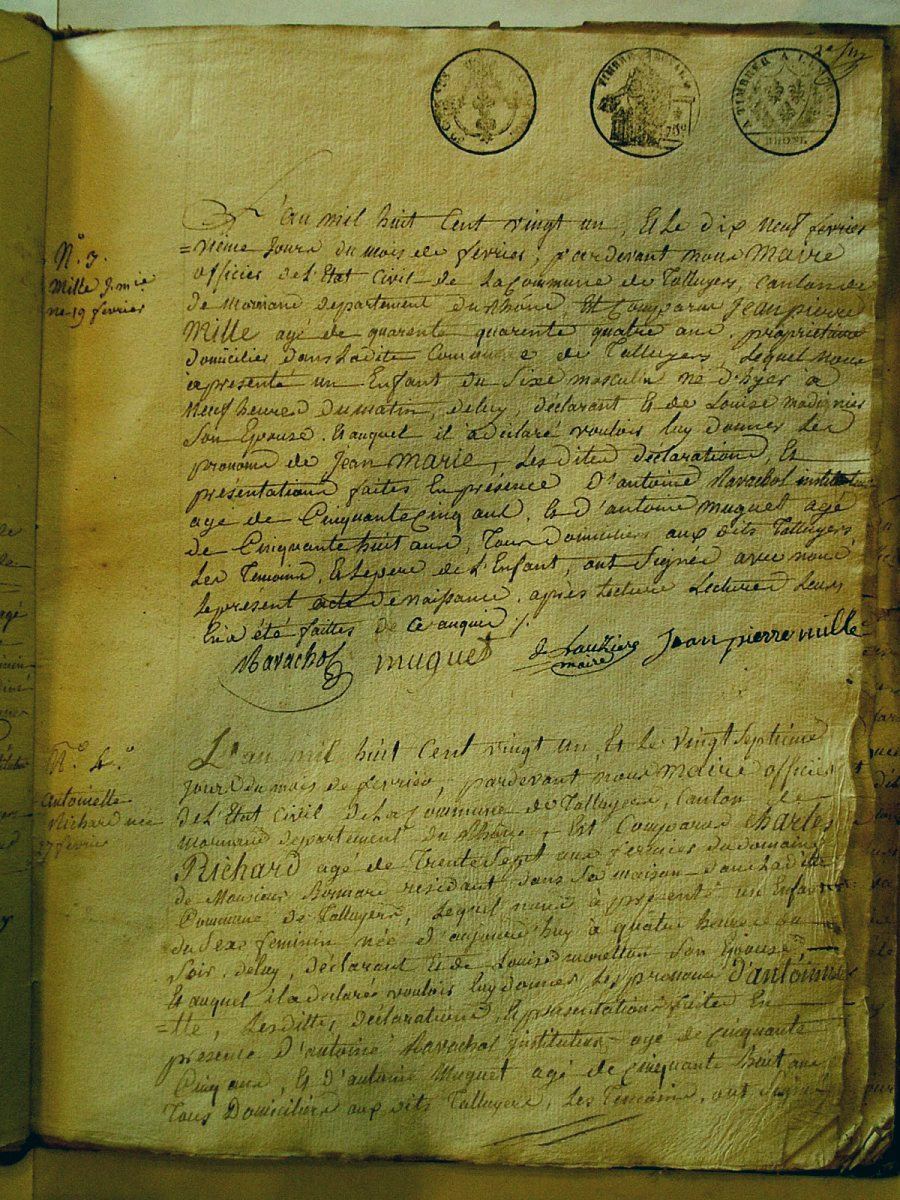 2e
TIMBRE ROYAL
A TIMBRER A L'
RHONE
L'an mil huit Cent vingt un, Et le dix neuf fevrier
=vième Jours du mois de fevrier, pardevant nous Maire
officier de L'Etat Civil de La Commune de Talluyers, canton de
de Mornant departement du Rhône, Est Comparu Jean pierre
Mille agé de quarente quarente quatre ans, proprietaire
domicilier dans Ladite Commune de Talluyers Lequel nous
à presenté un Enfant du Sexe masculin né d'hyer à
Neuf heures du matin, de luy, déclarant Et de Louise madinier
Son Epouse. Et auquel il à déclaré vouloir luy donner Les
pronoms de Jean MARIE, Les dites déclarations, Et
présentations faites En présence D'antoine Ravachol instituteur
agé de Cinquante Cinq ans, Et d'antoine Muguet agé
de Cinquante huit ans, Tous Domiciliers aux dits Talluyers
Les Temoins, Et Le pere de L'Enfant, ont Signés avec nous
Le présent acte de Naissance, après Lecture Lectures Leurs
En à été faittes de Ce
N.o 3.
Mille J. marie
né 19 fevrier
Ravachol muguet de Lauzière Jean pierre mille
maire
N.o 4.o
Antoinette
Richard née
27 fevrier
L'an mil huit Cent vingt un, Et le vingt Septième
Jour du mois de fevrier, pardevant nous Maire officier
de L'Etat Civil de La Commune de Talluyers, Canton de
mornand departement du Rhône, Est Comparus Charles
Richard agé de Trente Sept ans fermier du domaine
de Monsieur Bonnard residant dans Sa maison dans Ladite
Commune de Talluyers, Lequel nous à présenté un Enfant
du Sexe feminin née d'aujourd'huy à quatre heures du
Soir, de luy, déclarant Et de Louise moretton Son Epouse
Et auquel il a déclarés vouloir luy donner Les pronoms D'antoine
=tte, Les dittes déclarations, Et présentations faites En
présence D'antoine Ravachol instituteur agé de Cinquante
Cinq ans, Et D'antoine Muguet agé de Cinquante huit ans
Tous Domiciliers aux dits Talluyers, Les Temoins, ont Signés